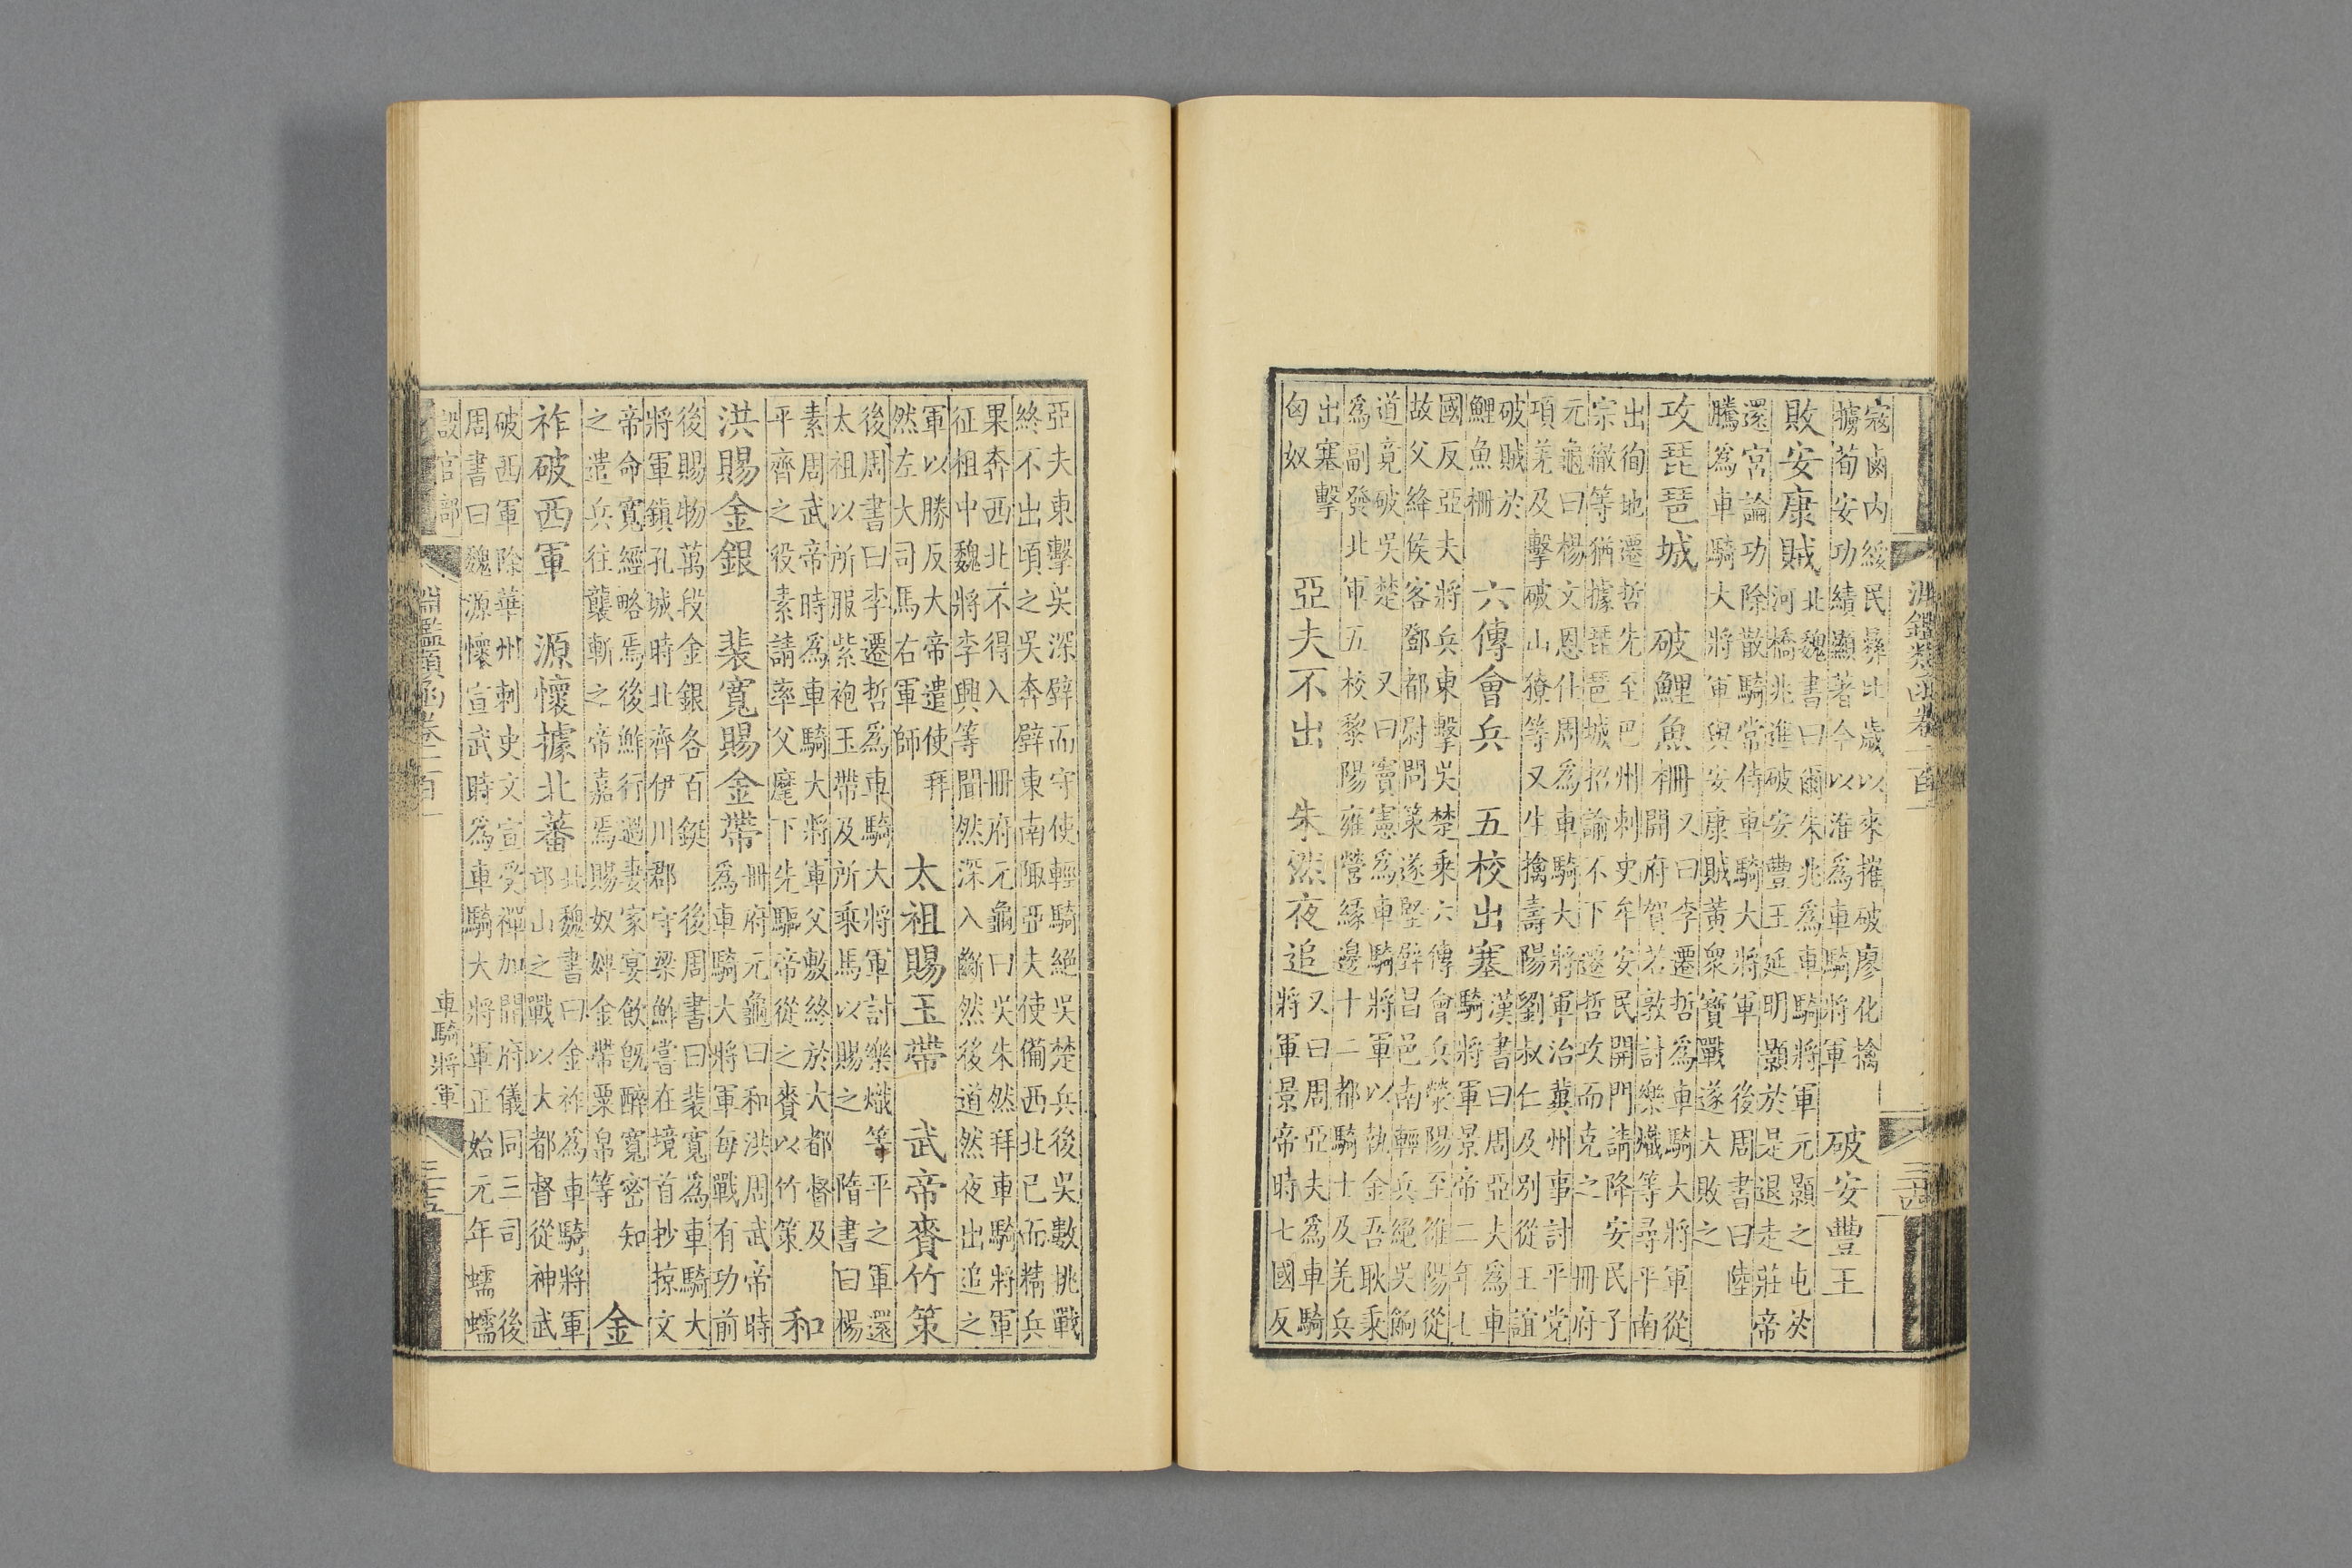 寇鹵内綏民彞比歲以來摧破廖化擒
擄荀安功績顯著今以淮為車騎將軍
破安豐王
敗安康賊
北魏書曰爾朱兆為車騎將軍元顥之屯於
河橋兆進破安豐王延明顥於是退走莊帝
還宮論功除散騎常侍車騎大將軍
後周書曰陸
騰為車騎大將軍與安康賊黃衆寶戰遂大敗之
攻琵琶城
破鯉魚柵
又曰李遷哲為車騎大將軍從
開府賀若敦討樂熾等尋平南
出徇地遷哲先至巴州刺史牟安民開門請降安民子
宗徹等猶據琵琶城招諭不下遷哲攻而克之
冊府
元龜曰楊文恩仕周為車騎大將軍治冀州事討平党
項羌及擊破山獠等又生擒壽陽劉叔仁及別從王誼
破賊於
鯉魚柵
六傳會兵
五校出塞
漢書曰周亞夫為車
騎將軍景帝二年七
國反亞夫將兵東擊吳楚乘六傳會兵滎陽至雒陽從
故父絳侯客鄧都尉問策遂堅壁昌邑南輕兵絕吳餉
道竟破吳楚
又曰竇憲為車騎將軍以執金吾耿秉
為副發北軍五校黎陽雍營緣邊十二都騎士及羌兵
出塞擊
匈奴
亞夫不出
朱然夜追
又曰周亞夫為車騎
將軍景帝時七國反
淵鑑類函卷一百一
亞夫東擊吳深壁而守使輕騎絕吳楚兵後吳數挑戰
終不出頃之吳奔壁東南陬亞夫使備西北已而精兵
果奔西北不得入
冊府元龜曰吳朱然拜車騎將軍
征柤中魏將李興等聞然深入斷然後道然夜出追之
軍以勝反大帝遣使拜
然左大司馬右軍師
太祖賜玉帶
武帝賚竹策
後周書曰李遷哲為車騎大將軍計樂熾等平之軍還
太祖以所服紫袍玉帶及所乘馬以賜之
隋書曰楊
素周武帝時為車騎大將軍父敷終於大都督及
平齊之役素請率父麾下先驅帝從之賚以竹策
和
洪賜金銀
裴寬賜金帶
冊府元龜曰和洪周武帝時
為車騎大將軍每戰有功前
後賜物萬段金銀各百鋌
後周書曰裴寬為車騎大
將軍鎮孔城時北齊伊川郡守梁鮓嘗在境首抄掠文
帝命寬經略焉後鮓行過妻家宴飲既醉寬密知
之遣兵往襲斬之帝嘉焉賜奴婢金帶粟帛等
金
祚破西軍
源懷據北蕃
北魏書曰金祚為車騎將軍
邙山之戰以大都督從神武
破西軍除華州刺史文宣受禪加開府儀同三司
後
周書曰魏源懷宣武時為車騎大將軍正始元年蠕蠕
設官部
淵鑑類函卷一百一
車騎將軍